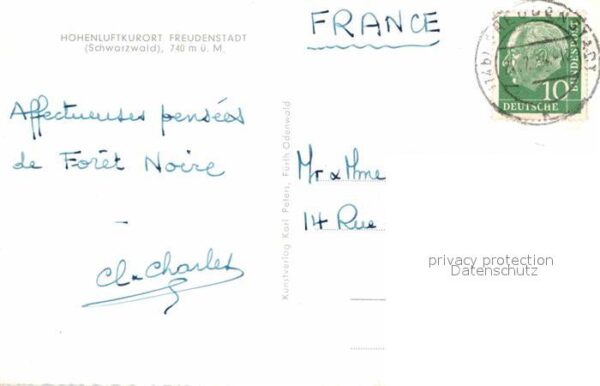 HÖHENLUFTKURORT FREUDENSTADT
(Schwarzwald), 740 m ü. M.
Affectueuses pensées
de Forêt Noire
-
Kunstverlag Karl Peters, Fürth Odenwald
FRANCE
10
DEUTSCHE
BUNDESPOST
Mr & Mme
14 Rue
privacy protection
Datenschutz